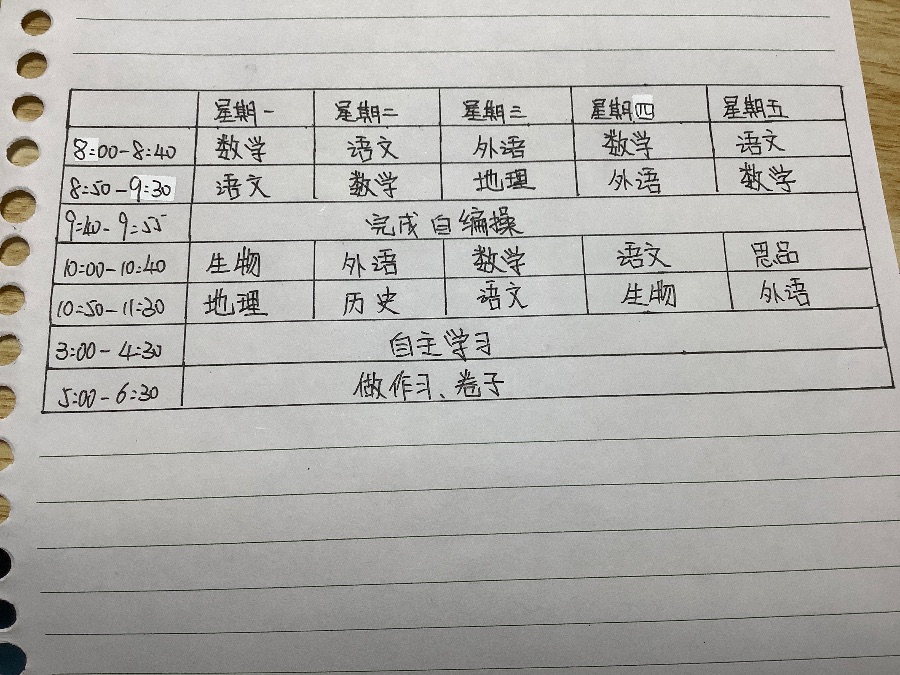 星期一 星期二 星期三 星期四 星期五
8:00-8:40 数学 语文 外语 数学 语文
8:50-9:30 语文 数学 地理 外语 数学
9:40-9:55 完成自编操
10:00-10:40 生物 外语 数学 语文 思品
10:50-11:30 地理 历史 语文 生物 外语
3:00-4:30 自主学习
5:00-6:30 做作习、卷子